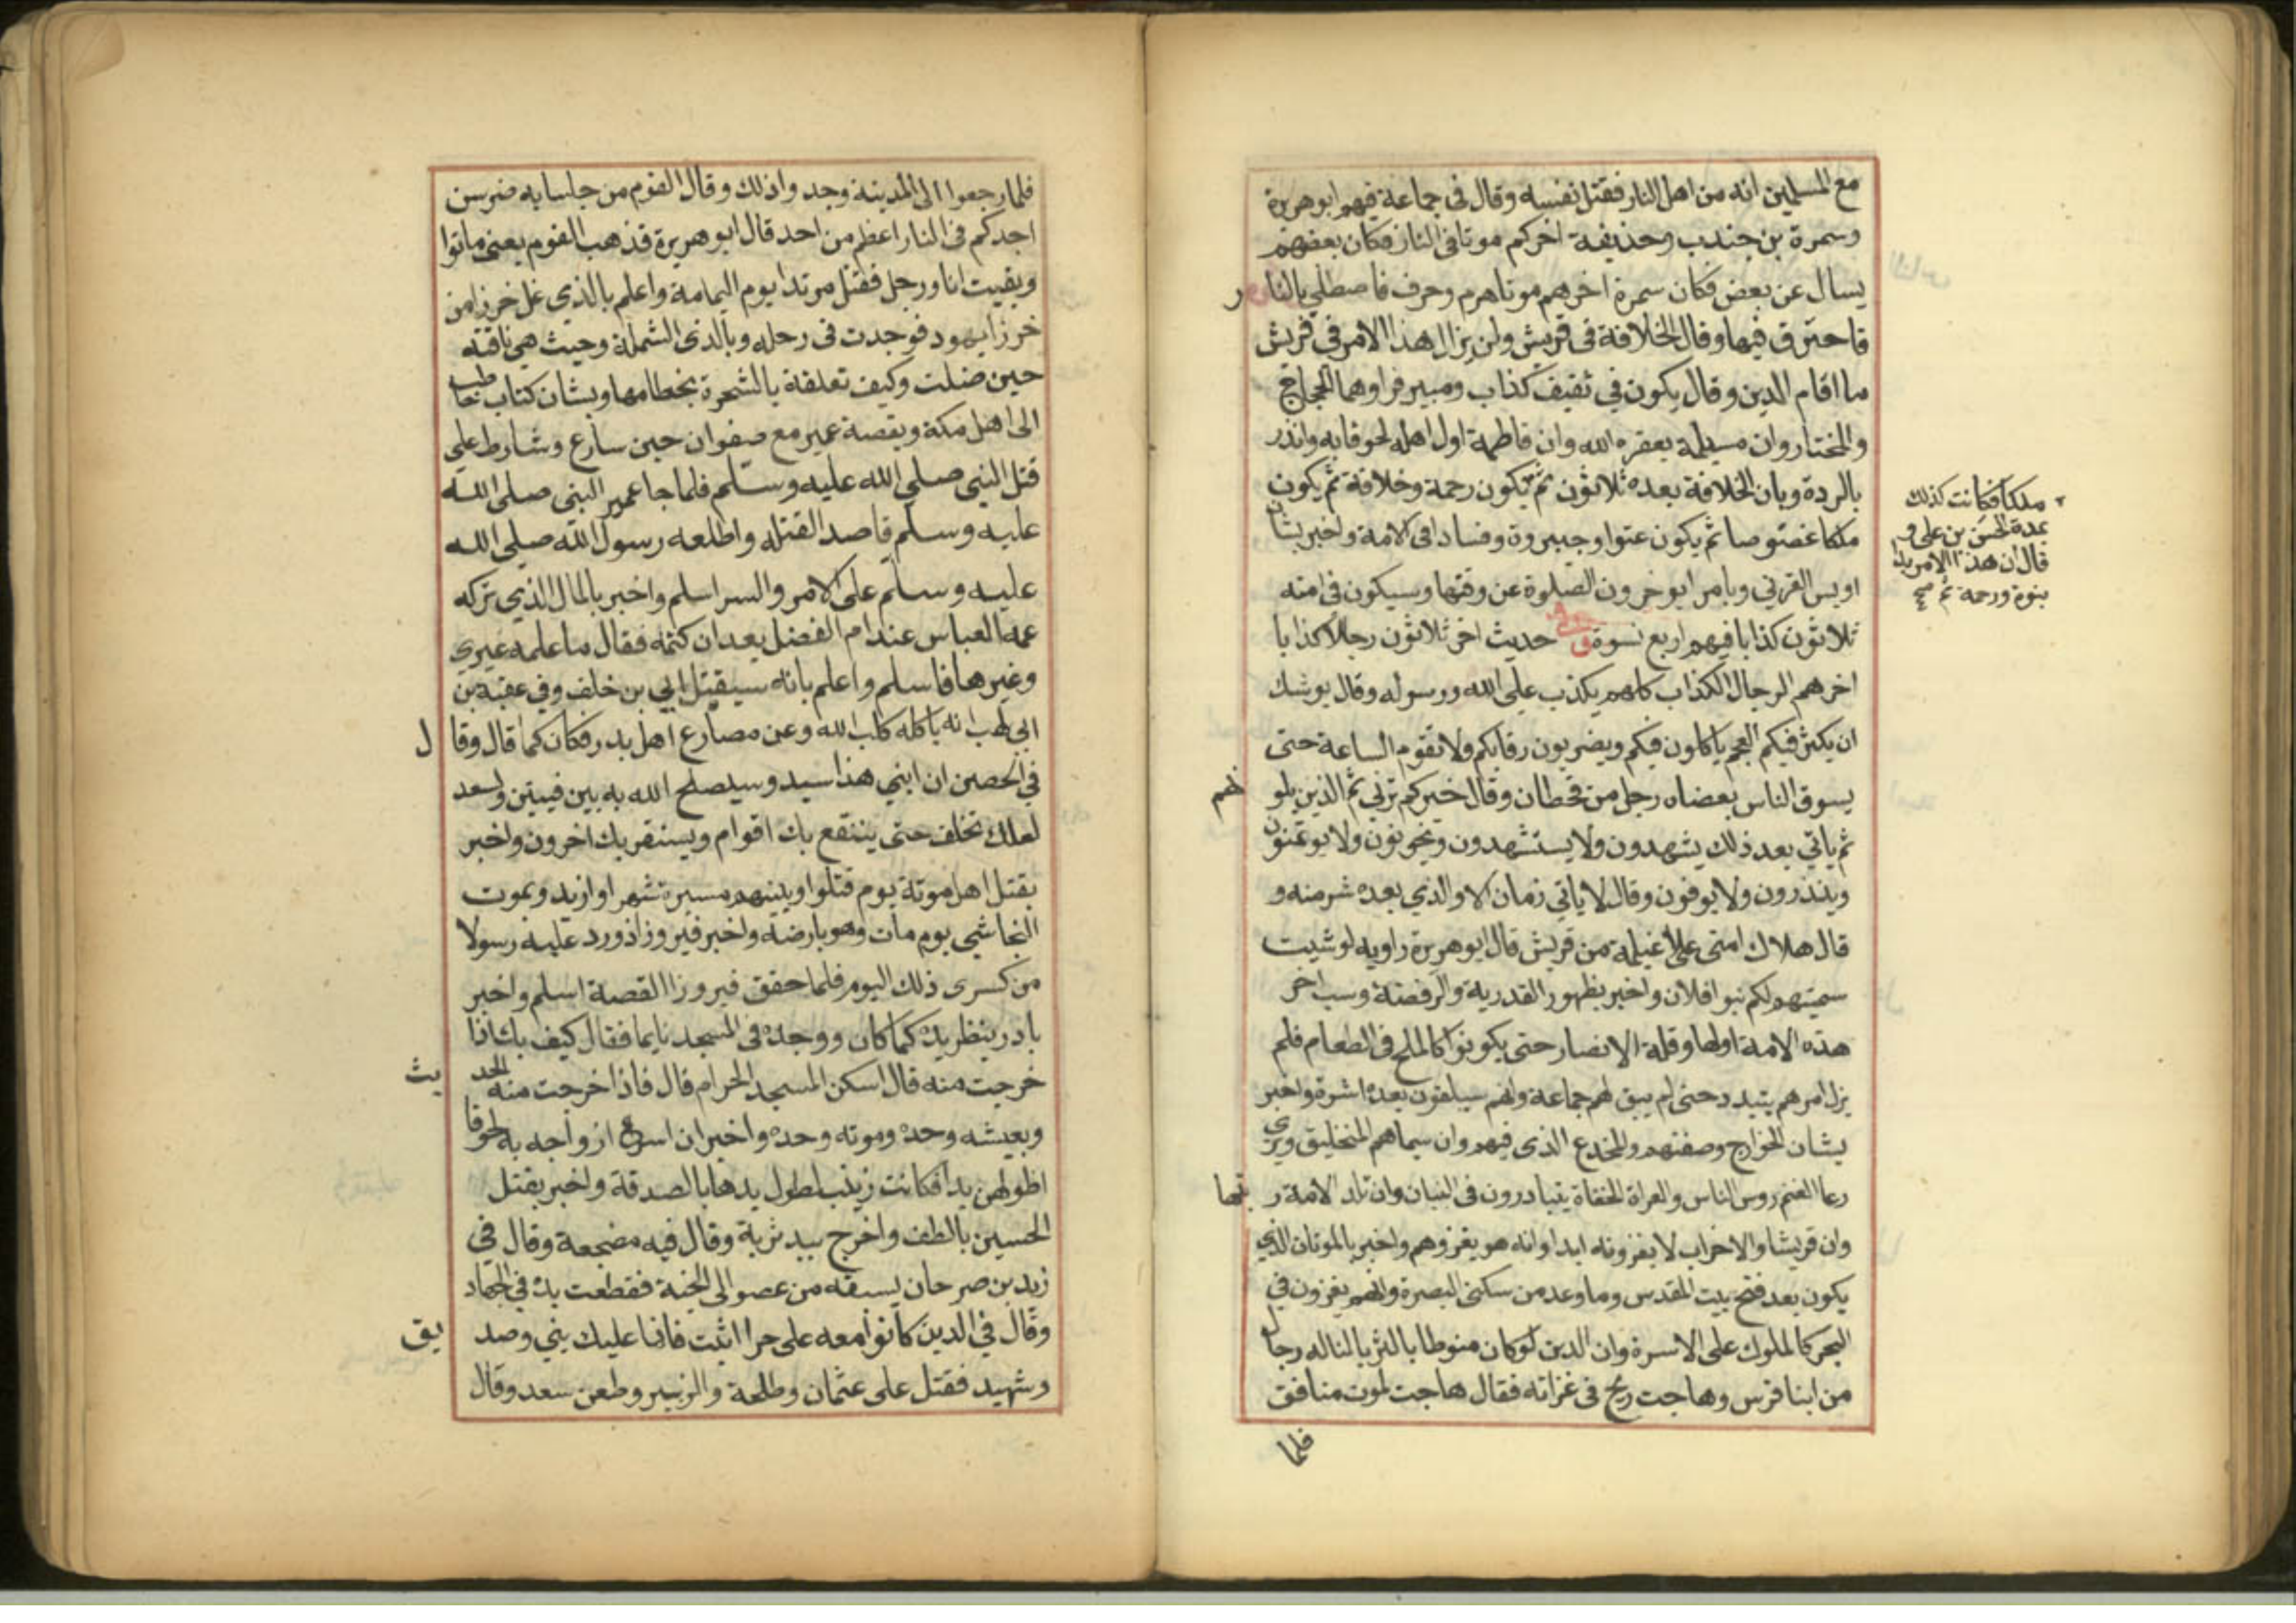 مع المسلمين انه من اهل النار فقتل نفسه وقال فى جماعة فيهم ابو هريرة
وسمرة بن جندب وحذيفة اخركم موتا فى النار فكان بعضهم
يسال عن بعض فكان سمرة اخرهم موتا هرم وخرف فاصطلي بالنار
فاحترق فيها وقال الخلافة فى قريش ولن يزال هذا الامر في قريش
ما اقام الدين وقال يكون في ثقيف كذاب ومبير فراوهما الحجاج
والمختار وان مسيلمة يعقره الله وان فاطمة اول اهله لحوقا به وانذر
بالردة وبان الخلافة بعده ثلاثون ثم تكون رحمة وخلافة ثم يكون
ملكا عضوضا ثم يكون عتوا وجبروة وفسادا فى الامة واخبر بشان
اويس القرني وبامرا يوخرون الصلوة عن وقتها وسيكون فى امته
ثلاثون كذابا فيهم اربع نسوة وفي حديث اخر ثلاثون رجلا كذابا
اخرهم الرجال الكذاب كلهم يكذب على الله ورسوله وقال يوشك
ان يكثر فيكم العجم ياكلون فيكم ويضربون رقابكم ولا تقوم الساعة حتى
يسوق الناس بعصاه رجل من قحطان وقال خيركم قرني ثم الذين يلو نهم
ثم ياتي بعد ذلك يشهدون ولا يستشهدون ويخونون ولا يوتمنون
وينذرون ولا يوفون وقال لا ياتي زمان الا والذي بعده شر منه و
قال هلاك امتى على اغيلمة من قريش قال ابو هريرة راويه لو شيت
سميتهم لكم بنوا فلان واخبر بظهور القدرية والرفضة وسب اخر
هذه الامة اولها وقلة الانصار حتى يكونوا كالملح فى الطعام فلم
يزل امرهم يتبدد حتى لم يبق لهم جماعة وانهم سيلقون بعده اشرة واخبر
بشان الخوارج وصفتهم والمخدع الذى فيهم وان سيماهم التحليق ويرى
رعا الغنم روس الناس والعراة الحفاة يتبادرون فى البنيان وان تلد الامة ر بتها
وان قريشا والاحزاب لا يغزونه ابدا وانه هو يغزوهم واخبر بالموتان الذي
يكون بعد فتح بيت المقدس وما وعد من سكنى البصرة وانهم يغزون في
البحر كالملوك على الاسرة وان الدين لو كان منوطا بالثريا لناله رجال
من ابنا فرس وهاجت ريح فى غزاته فقال هاجت لموت منافق
فلما
ملكا فكانت كذلك
بمدة الحسن بن على و
قال ان هذا الامر بدا
بنبوة ورحمة ثم صح
فلما رجعوا الى المدينة وجدوا ذلك وقال لقوم من جلسايه ضرس
احدكم فى النار اعظم من احد قال ابو هريرة فذهب القوم يعنى ماتوا
وبقيت انا ورجل فقتل مرتدا يوم اليمامة واعلم بالذي غل خرزا من
خرزا يهود فوجدت فى رحله وبالذى الشملة وحيث هي ناقته
حين ضلت وكيف تعلقة بالشجرة بخطامها وبشان كتاب حاطب
الى اهل مكة وبقصة عمير مع صفوان حين سارع وشارط على
قتل النبي صلى الله عليه وسلم فلما جا عمير النبى صلى الله
عليه وسلم قاصدا لقتله واطلعه رسول الله صلى الله
عليه وسلم على الامر والسر اسلم واخبر بالمال الذي تركه
عمه العباس عند ام الفضل بعد ان كتمه فقال ما علمه غيري
وغيرها فاسلم واعلم بانه سيقتل ابي بن خلف وفي عقبة بن
ابي لهب انه ياكله كلب الله وعن مصارع اهل بدر فكان كما قال وقا ل
في الحصين ان ابني هذا سيد وسيصلح الله به بين فيتين ولسعد
لعلك تخلف حتى ينتفع بك اقوام ويستضر بك اخرون واخبر
بقتل اهل موتة يوم قتلوا وبينهم مسيرة شهر او ازيد وبموت
النجاشي يوم مات وهو بارضه واخبر فيروز اذ ورد عليه رسولا
من كسرى ذلك اليوم فلما حقق فيروز القصة اسلم واخبر
باذر بنظريده كما كان ووجده فى المسجد نايما فقال كيف بك اذا
خرجت منه قال اسكن المسجد الحرام قال فاذا اخرجت منه الحد يث
وبعيشه وحده وموته وحده واخبر ان اسرع ازواجه به لحوقا
اطولهن يدا فكانت زينب لطول يدها بالصدقة واخبر بقتل
الحسين بالطف واخرج بيد تربة وقال فيه مضجعة وقال في
زيد بن صرحان يسبقه من عضو الى الجنة فقطعت يده في الجهاد
وقال في الذين كانوا معه على حرا اثبت فانما عليك نبي وصد يق
وشهيد فقتل على عثمان وطلحة والزبير وطعن سعد وقال